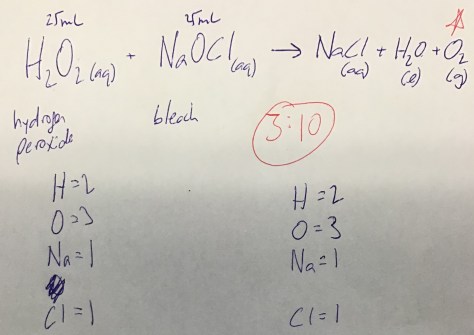 25mL 25mL
H₂O₂(aq) + NaOCl(aq) → NaCl(aq) + H₂O(l) + O₂(g)
hydrogen peroxide bleach
3:10
H=2 H=2
O=3 O=3
Na=1 Na=1
Cl=1 Cl=1